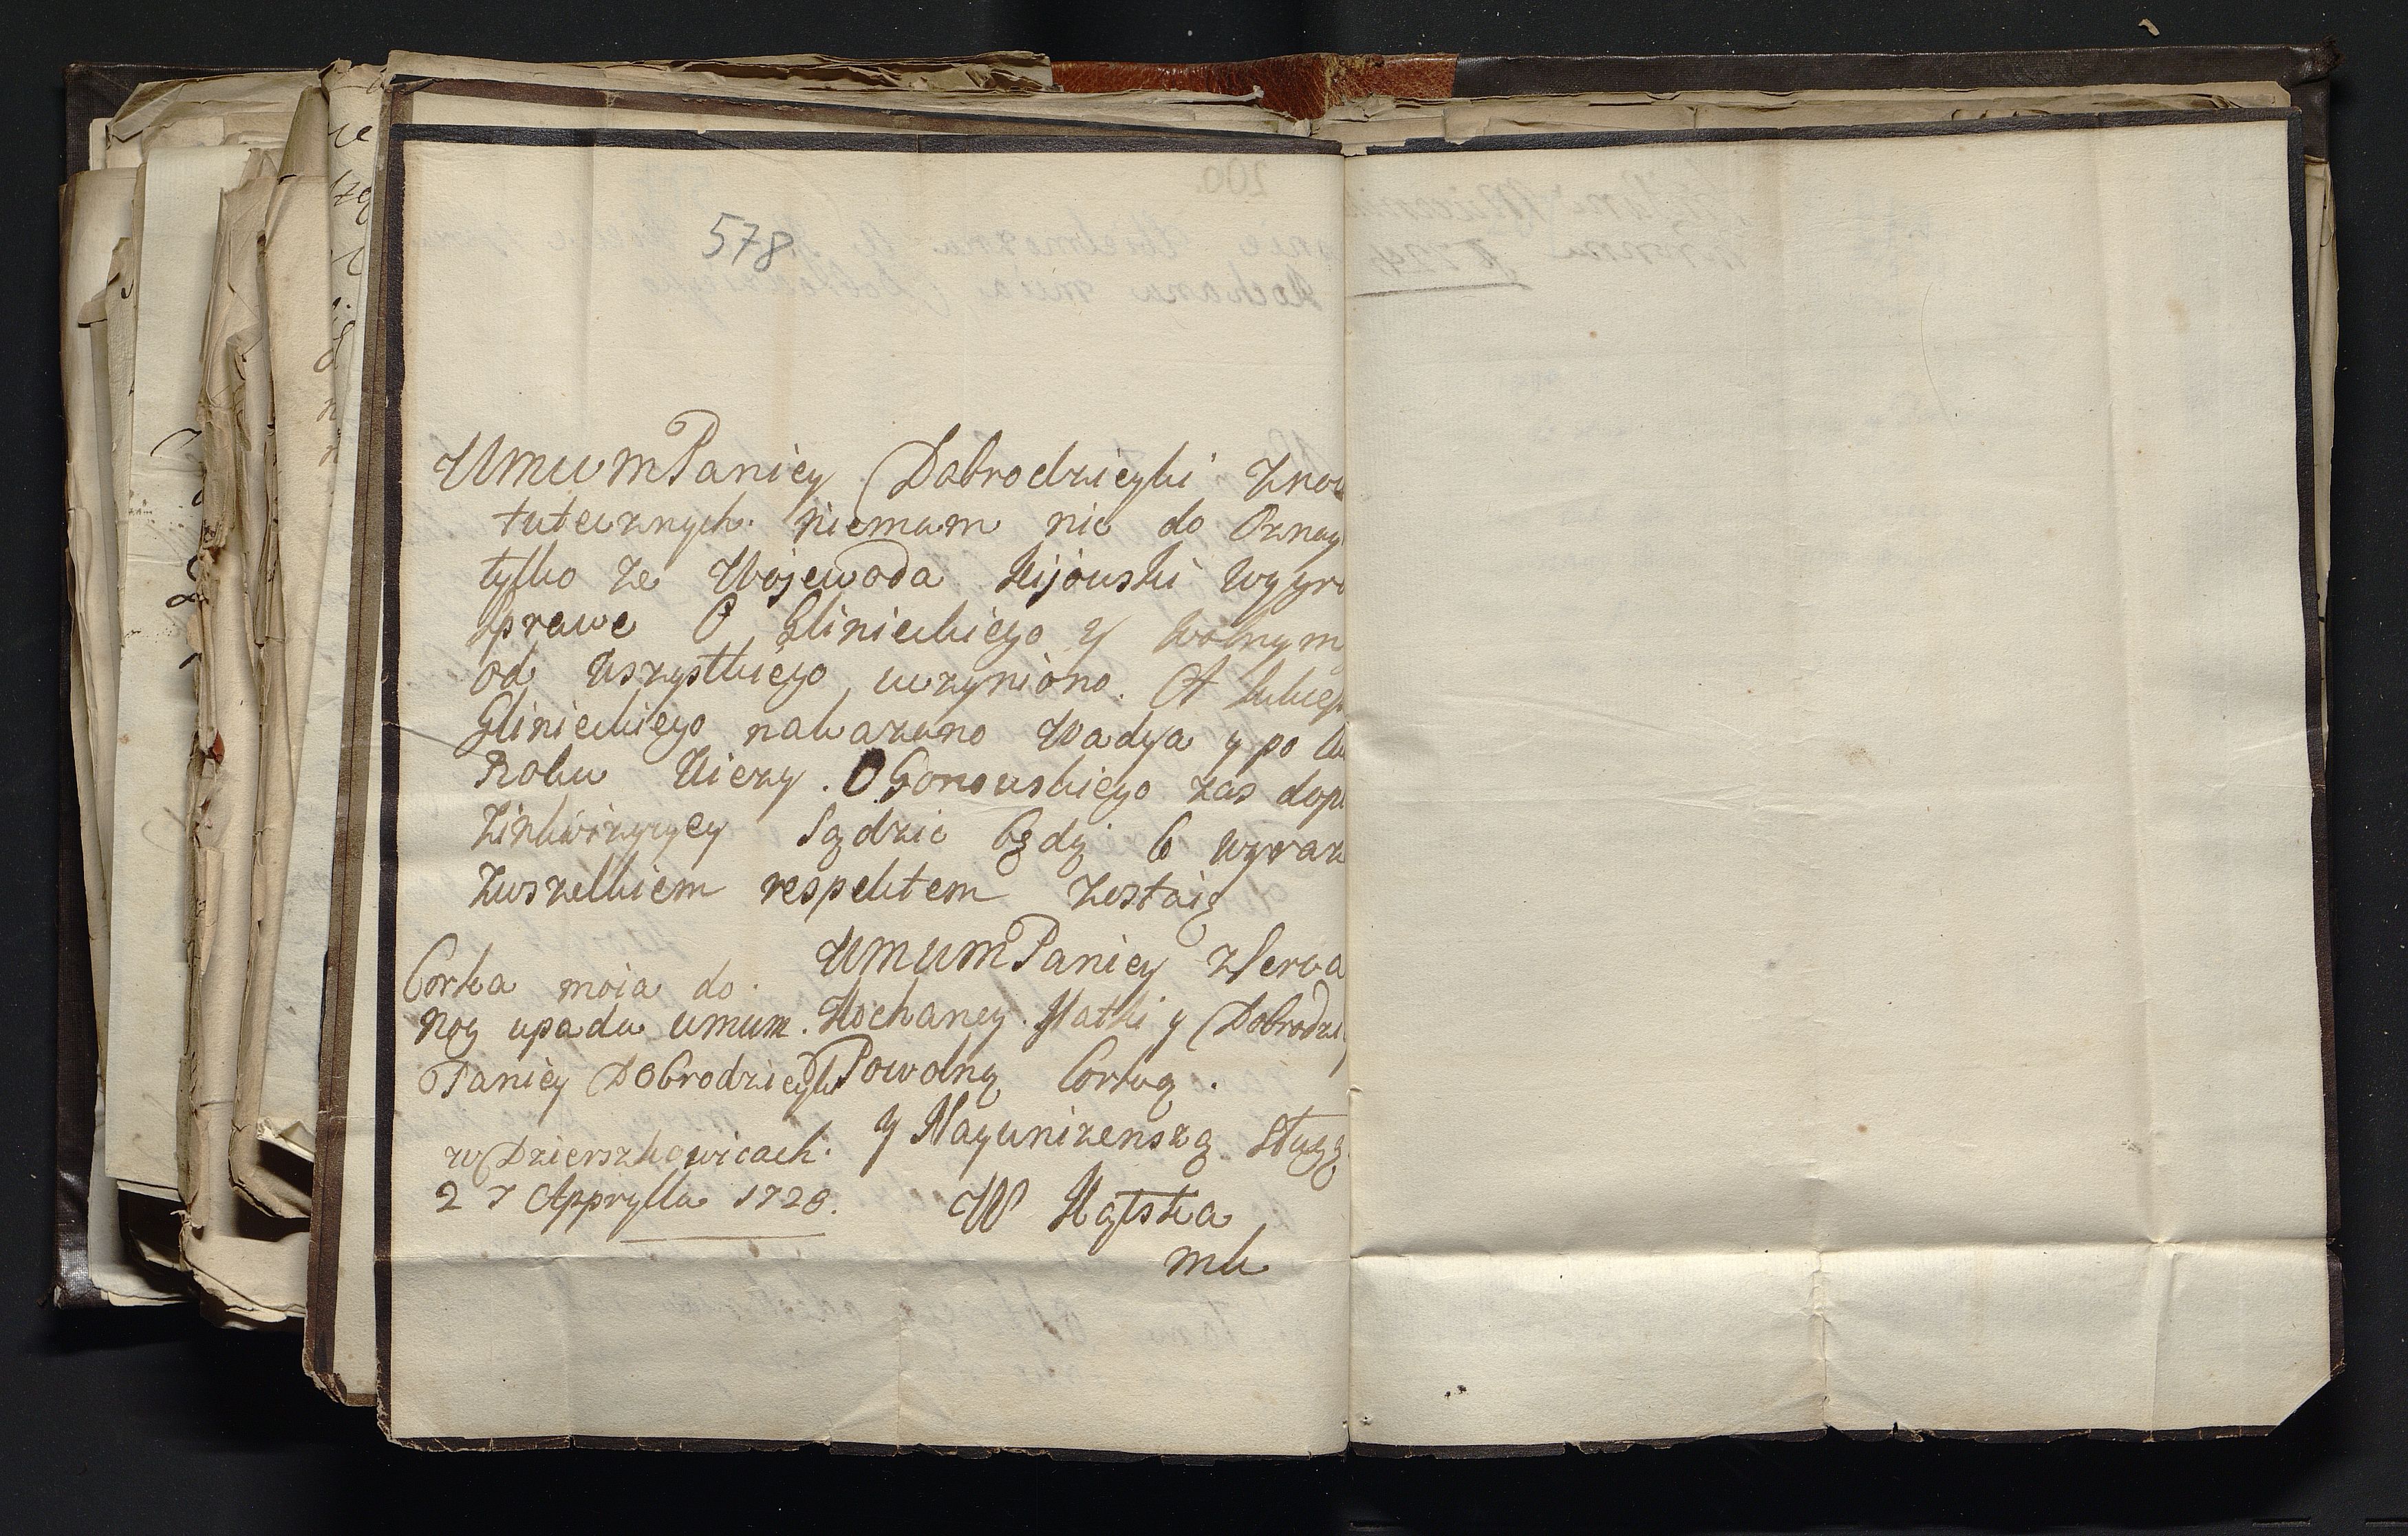 578
UmumPaniey Dobrodzieyki Znow
tutecznych. niemam nic do Oznay
tylko ze Wojewoda Kijowski wygra
sprawe O Glinieckiego y wolnym
od wszystkiego uczyniono. A
Glinieckiego nakazano Wadya y po
Roku Wiezy. OGonowskiego zas dopi
Sądzic będą wyraz
Zwszelkiem respektem Zostaię
UmumPaniey zserca
Kochaney Matki y Dobrodzi
Powolną Corką.
y Nayunizenszą sługą
W Kątska
mk
Corka moia do.
nog upada umum.
Paniey Dobrodzieyki
w Dzierszkowicach.
27 Apprylla 1728.